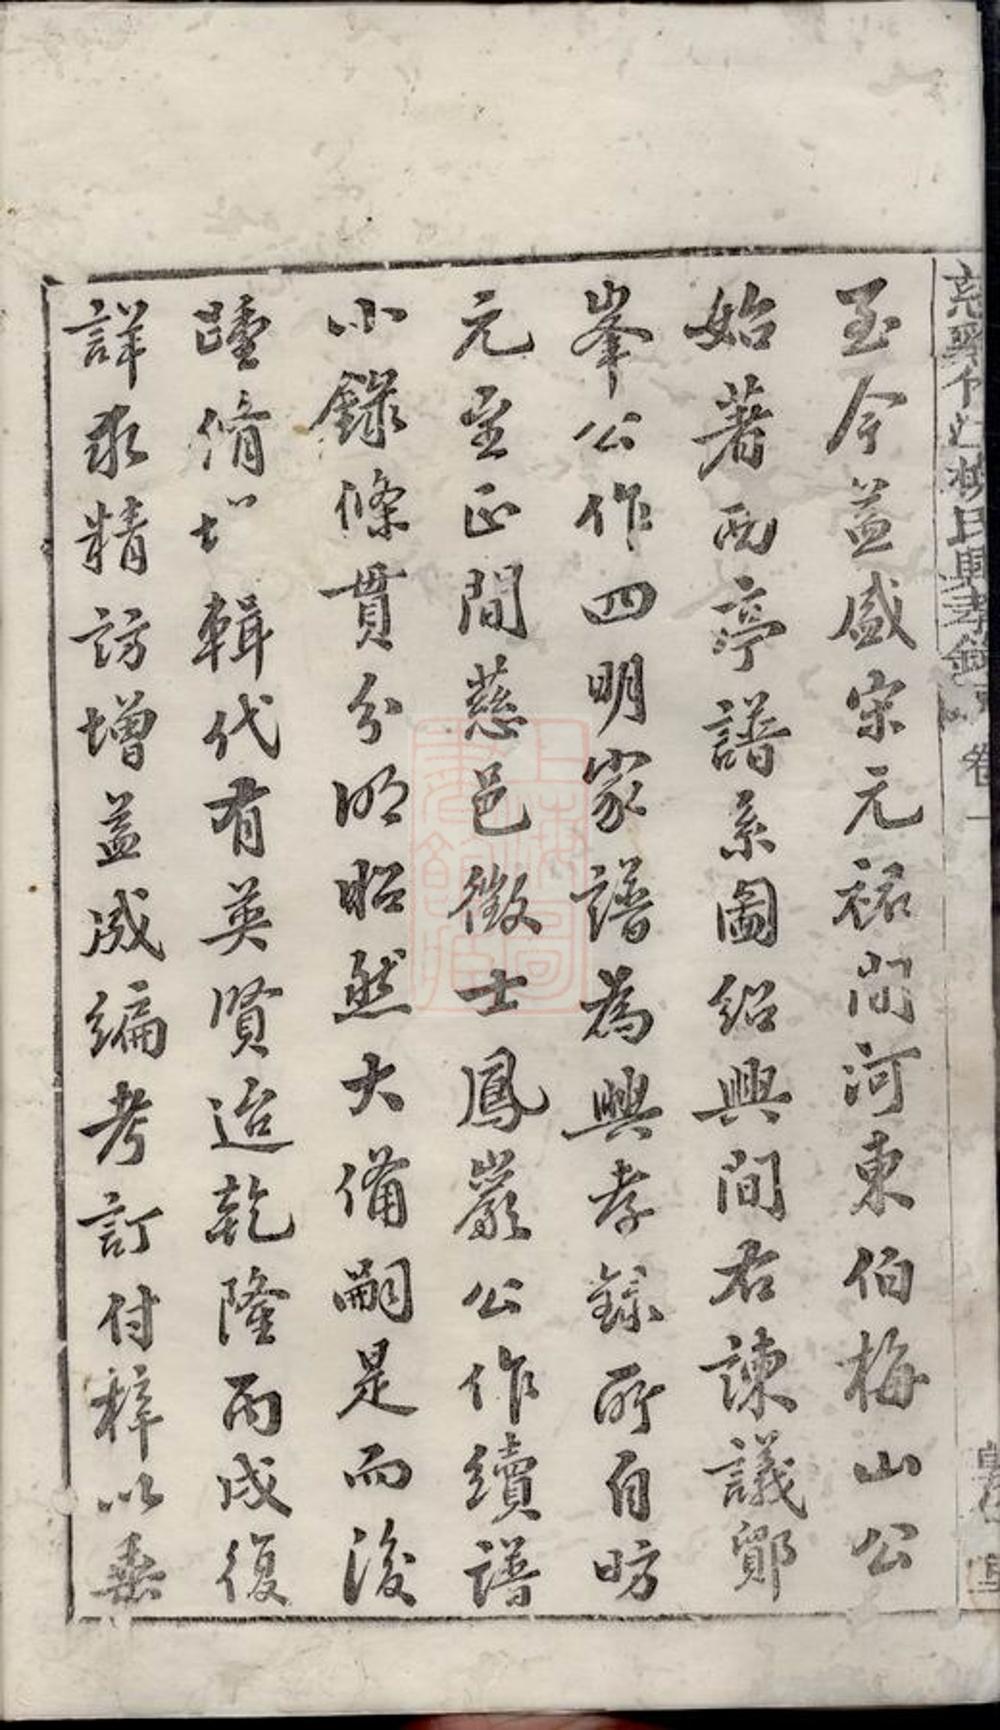 至今益盛宋元祐间河東伯梅山公
始著西亭譜系圖紹興間右諫議鄞
峯公作四明家譜為興孝錄所自昉
元至正間慈邑徵士鳳巖公作續譜
小錄條貫分明昭然大備嗣是而後
踵脩 輯代有英賢迨乾隆丙戌復
詳求精訪增益成編考訂付梓以垂
氏興孝錄 卷一
上海圖書館藏